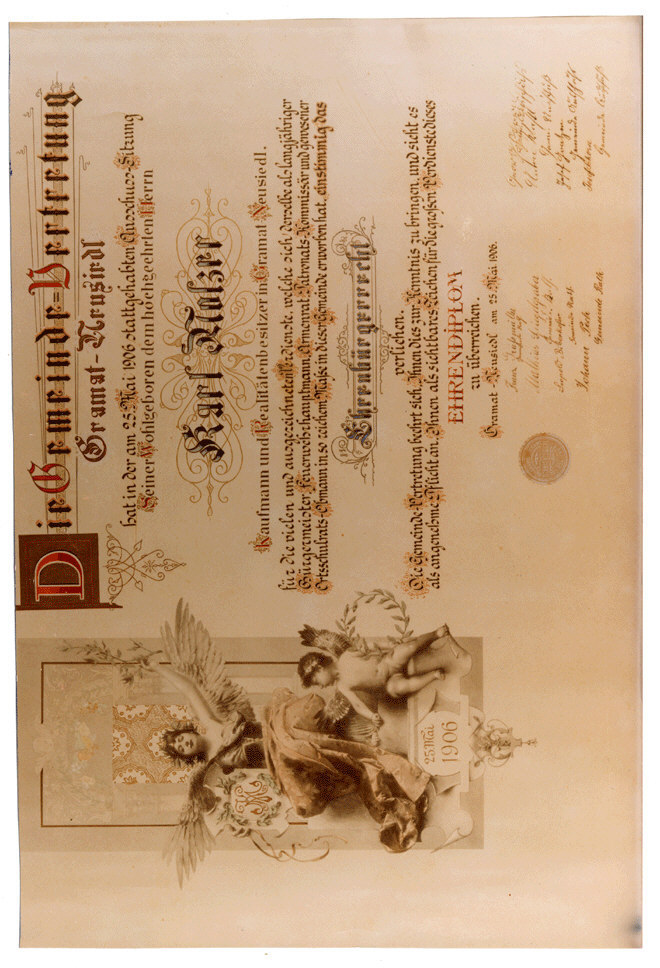 Die Gemeinde-Vertretung
Gramat-Neusiedl
hat in der am 25. Mai 1906 stattgehabten Ausschuss-Sitzung
Seiner Wohlgeboren dem hochgeehrten Herrn
Karl Molzer
Kaufmann und Realitätenbesitzer in Gramat Neusiedl.
für die vielen und ausgezeichneten Verdienste, welche sich derselbe als langjähriger
Bürgermeister, Feuerwehrhauptmann, Armenrat, Reformats-Kommissär und gewesener
Ortsschulrats-Obmann in so reichem Maße in dieser Gemeinde erworben hat, einstimmig das
Ehrenbürgerrecht
verliehen.
Die Gemeinde-Vertretung beehrt sich, Ihnen dies zur Kenntnis zu bringen, und sieht es
als angenehme Pflicht an, Ihnen als sichtbares Zeichen für die großen Verdienste dieses
EHRENDIPLOM
zu überreichen.
Gramat Neusiedl am 25. Mai 1906.
Johann Pock
Gemeinde Rath
25. Mai
1906